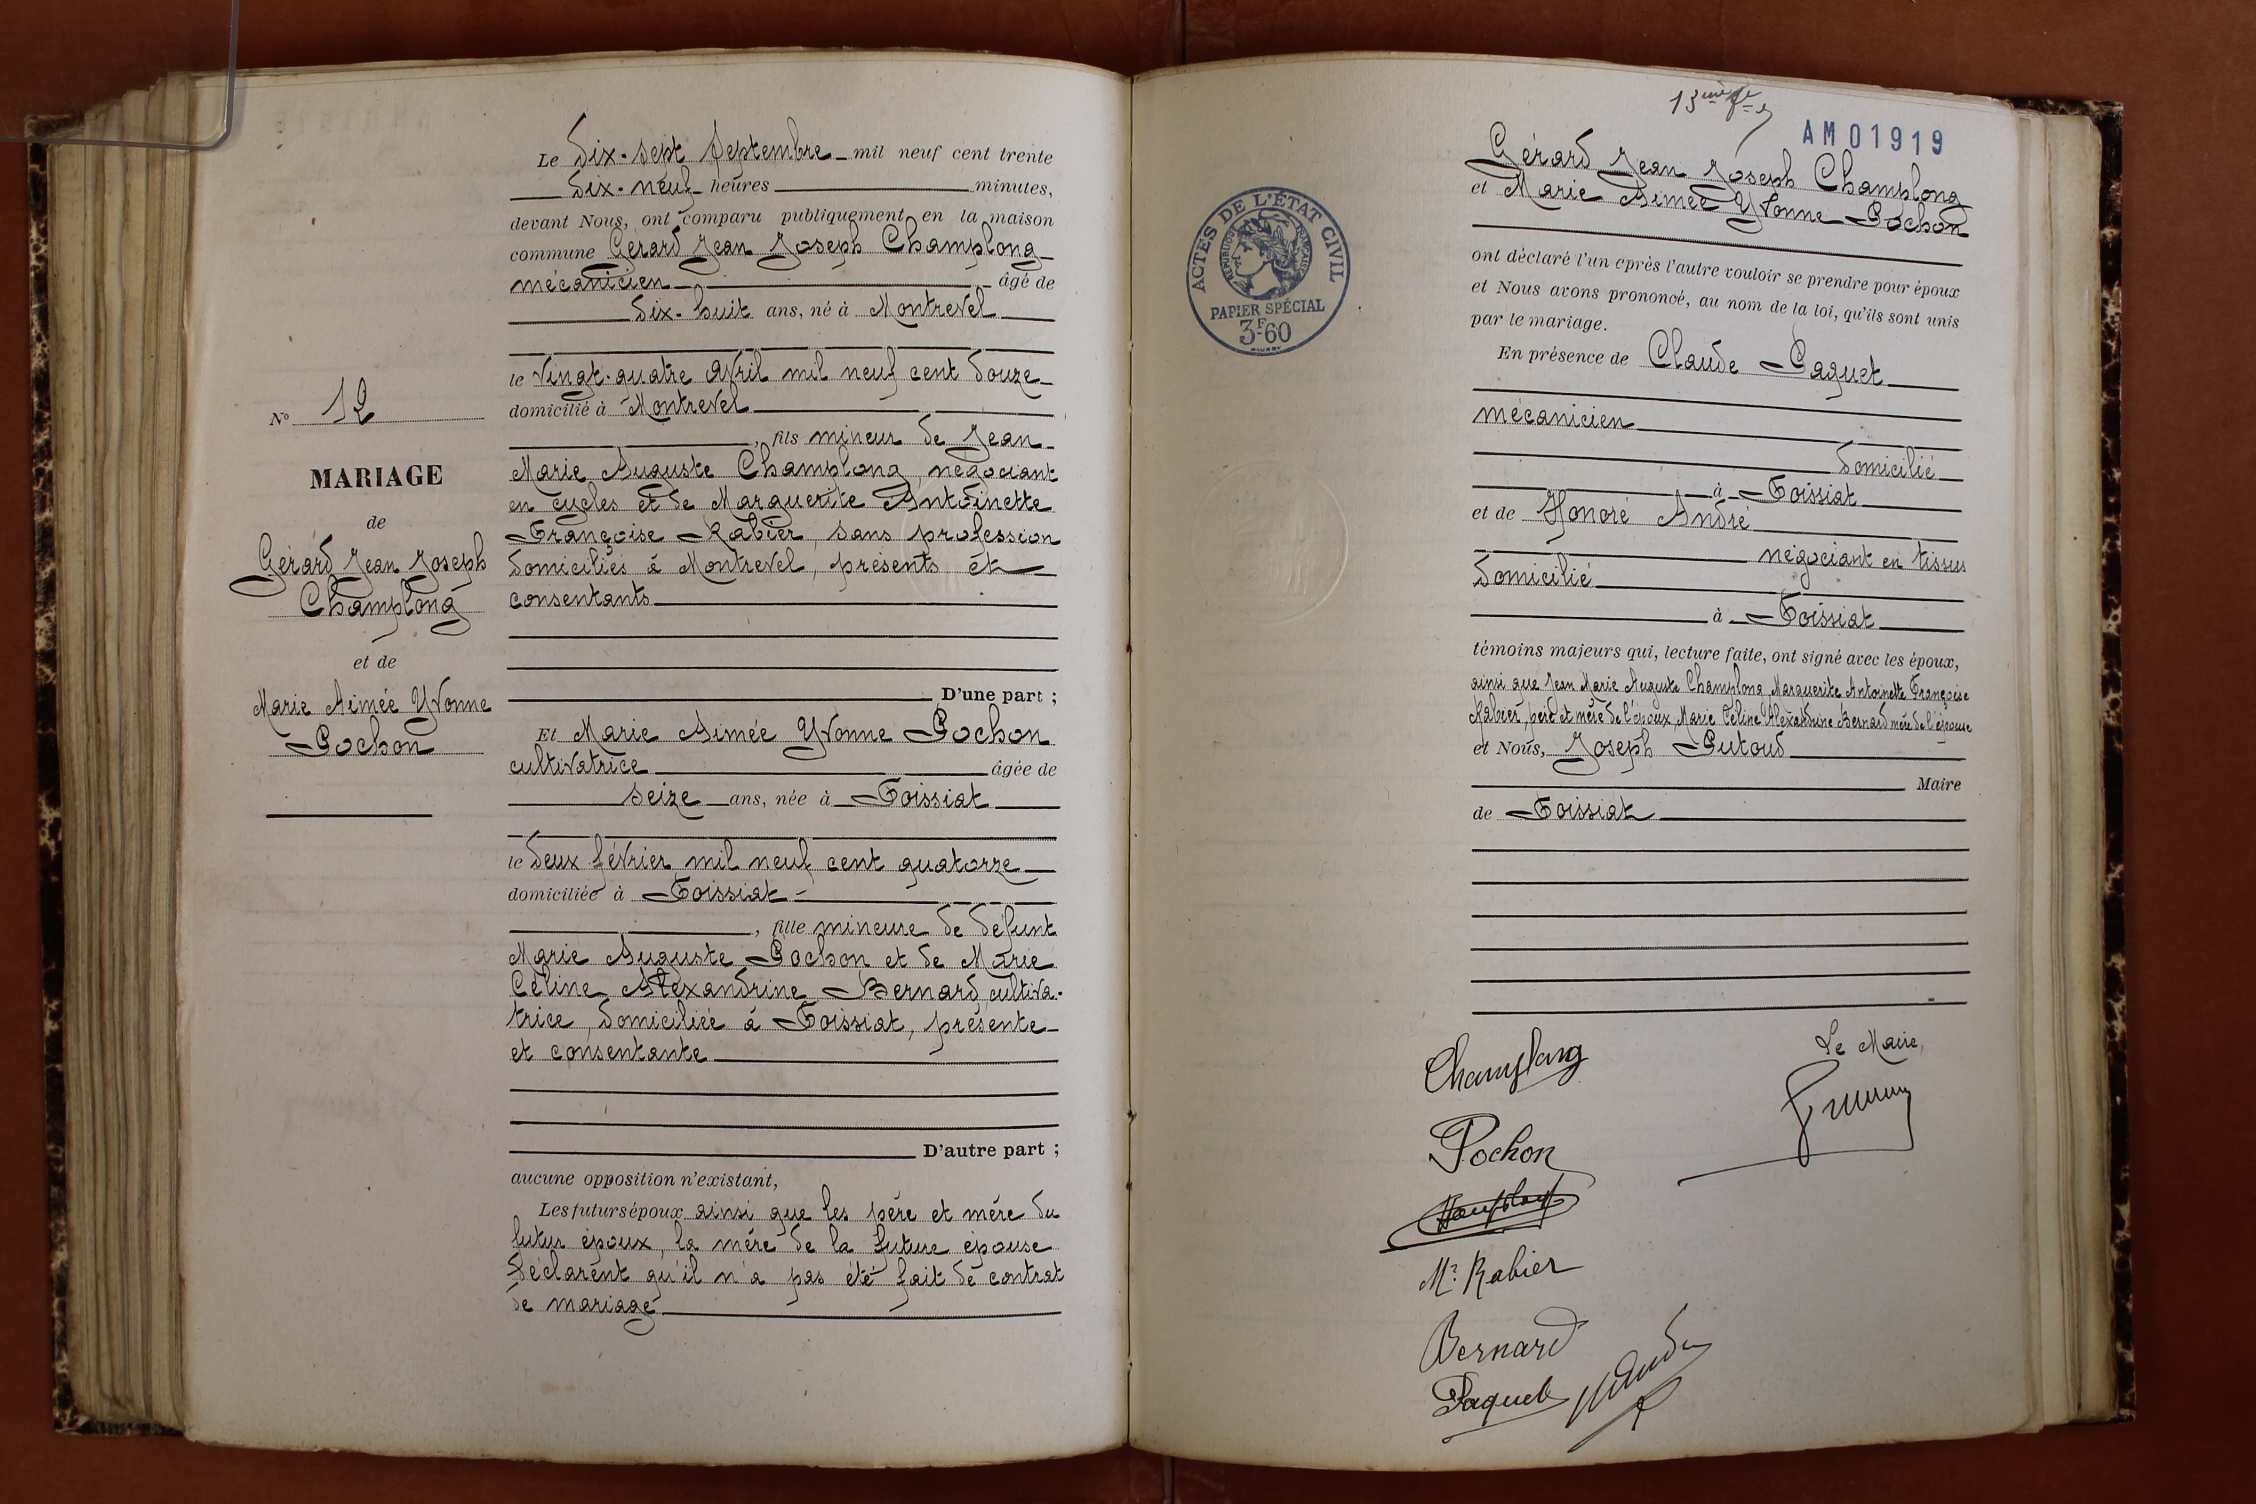 Le dix-sept septembre mil neuf cent trente
dix-neuf heures minutes,
devant Nous, ont comparu publiquement en la maison
commune Gérard Jean Joseph Champlong
mécanicien âgé de
dix-huit ans, né à Montrevel
le vingt-quatre avril mil neuf cent douze
domicilié à Montrevel
, fils mineur de Jean
Marie Auguste Champlong, négociant
en cycles et de Marguerite Antoinette
Françoise Rabier, sans profession
domiciliés à Montrevel, présents et
consentants
D'une part ;
Et Marie Aimée Yvonne Pochon
cultivatrice âgée de
seize ans, née à Foissiat
le deux février mil neuf cent quatorze
domiciliée à Foissiat
, fille mineure de défunt
Marie Auguste Pochon et de Marie
Céline Alexandrine Bernard, cultiva-
trice, domiciliée à Foissiat, présente
et consentante
D'autre part ;
aucune opposition n'existant,
Les futurs époux ainsi que les père et mère du
futur époux, la mère de la future épouse
déclarent qu'il n'a pas été fait de contrat
de mariage
N° 12
MARIAGE
de
Gérard Jean Joseph
Champlong
et de
Marie Aimée Yvonne
Pochon
13ème
AM01919
ACTES DE L'ÉTAT CIVIL
RÉPUBLIQUE FRANÇAISE
PAPIER SPÉCIAL
3F60
Gérard Jean Joseph Champlong
et Marie Aimée Yvonne Pochon
ont déclaré l'un après l'autre vouloir se prendre pour époux
et Nous avons prononcé, au nom de la loi, qu'ils sont unis
par le mariage.
En présence de Claude Paquet
mécanicien
domicilié
à Foissiat
et de Honoré André
négociant en tissus
domicilié
à Foissiat
témoins majeurs qui, lecture faite, ont signé avec les époux,
ainsi que Jean Marie Auguste Champlong, Marguerite Antoinette Françoise
Rabier, père et mère de l'époux, Marie Céline Alexandrine Bernard mère de l'épouse
et Nous, Joseph Putoud
Maire
de Foissiat
Le Maire,
Champlong
Pochon
Champlong
M. Rabier
Bernard
Paquet